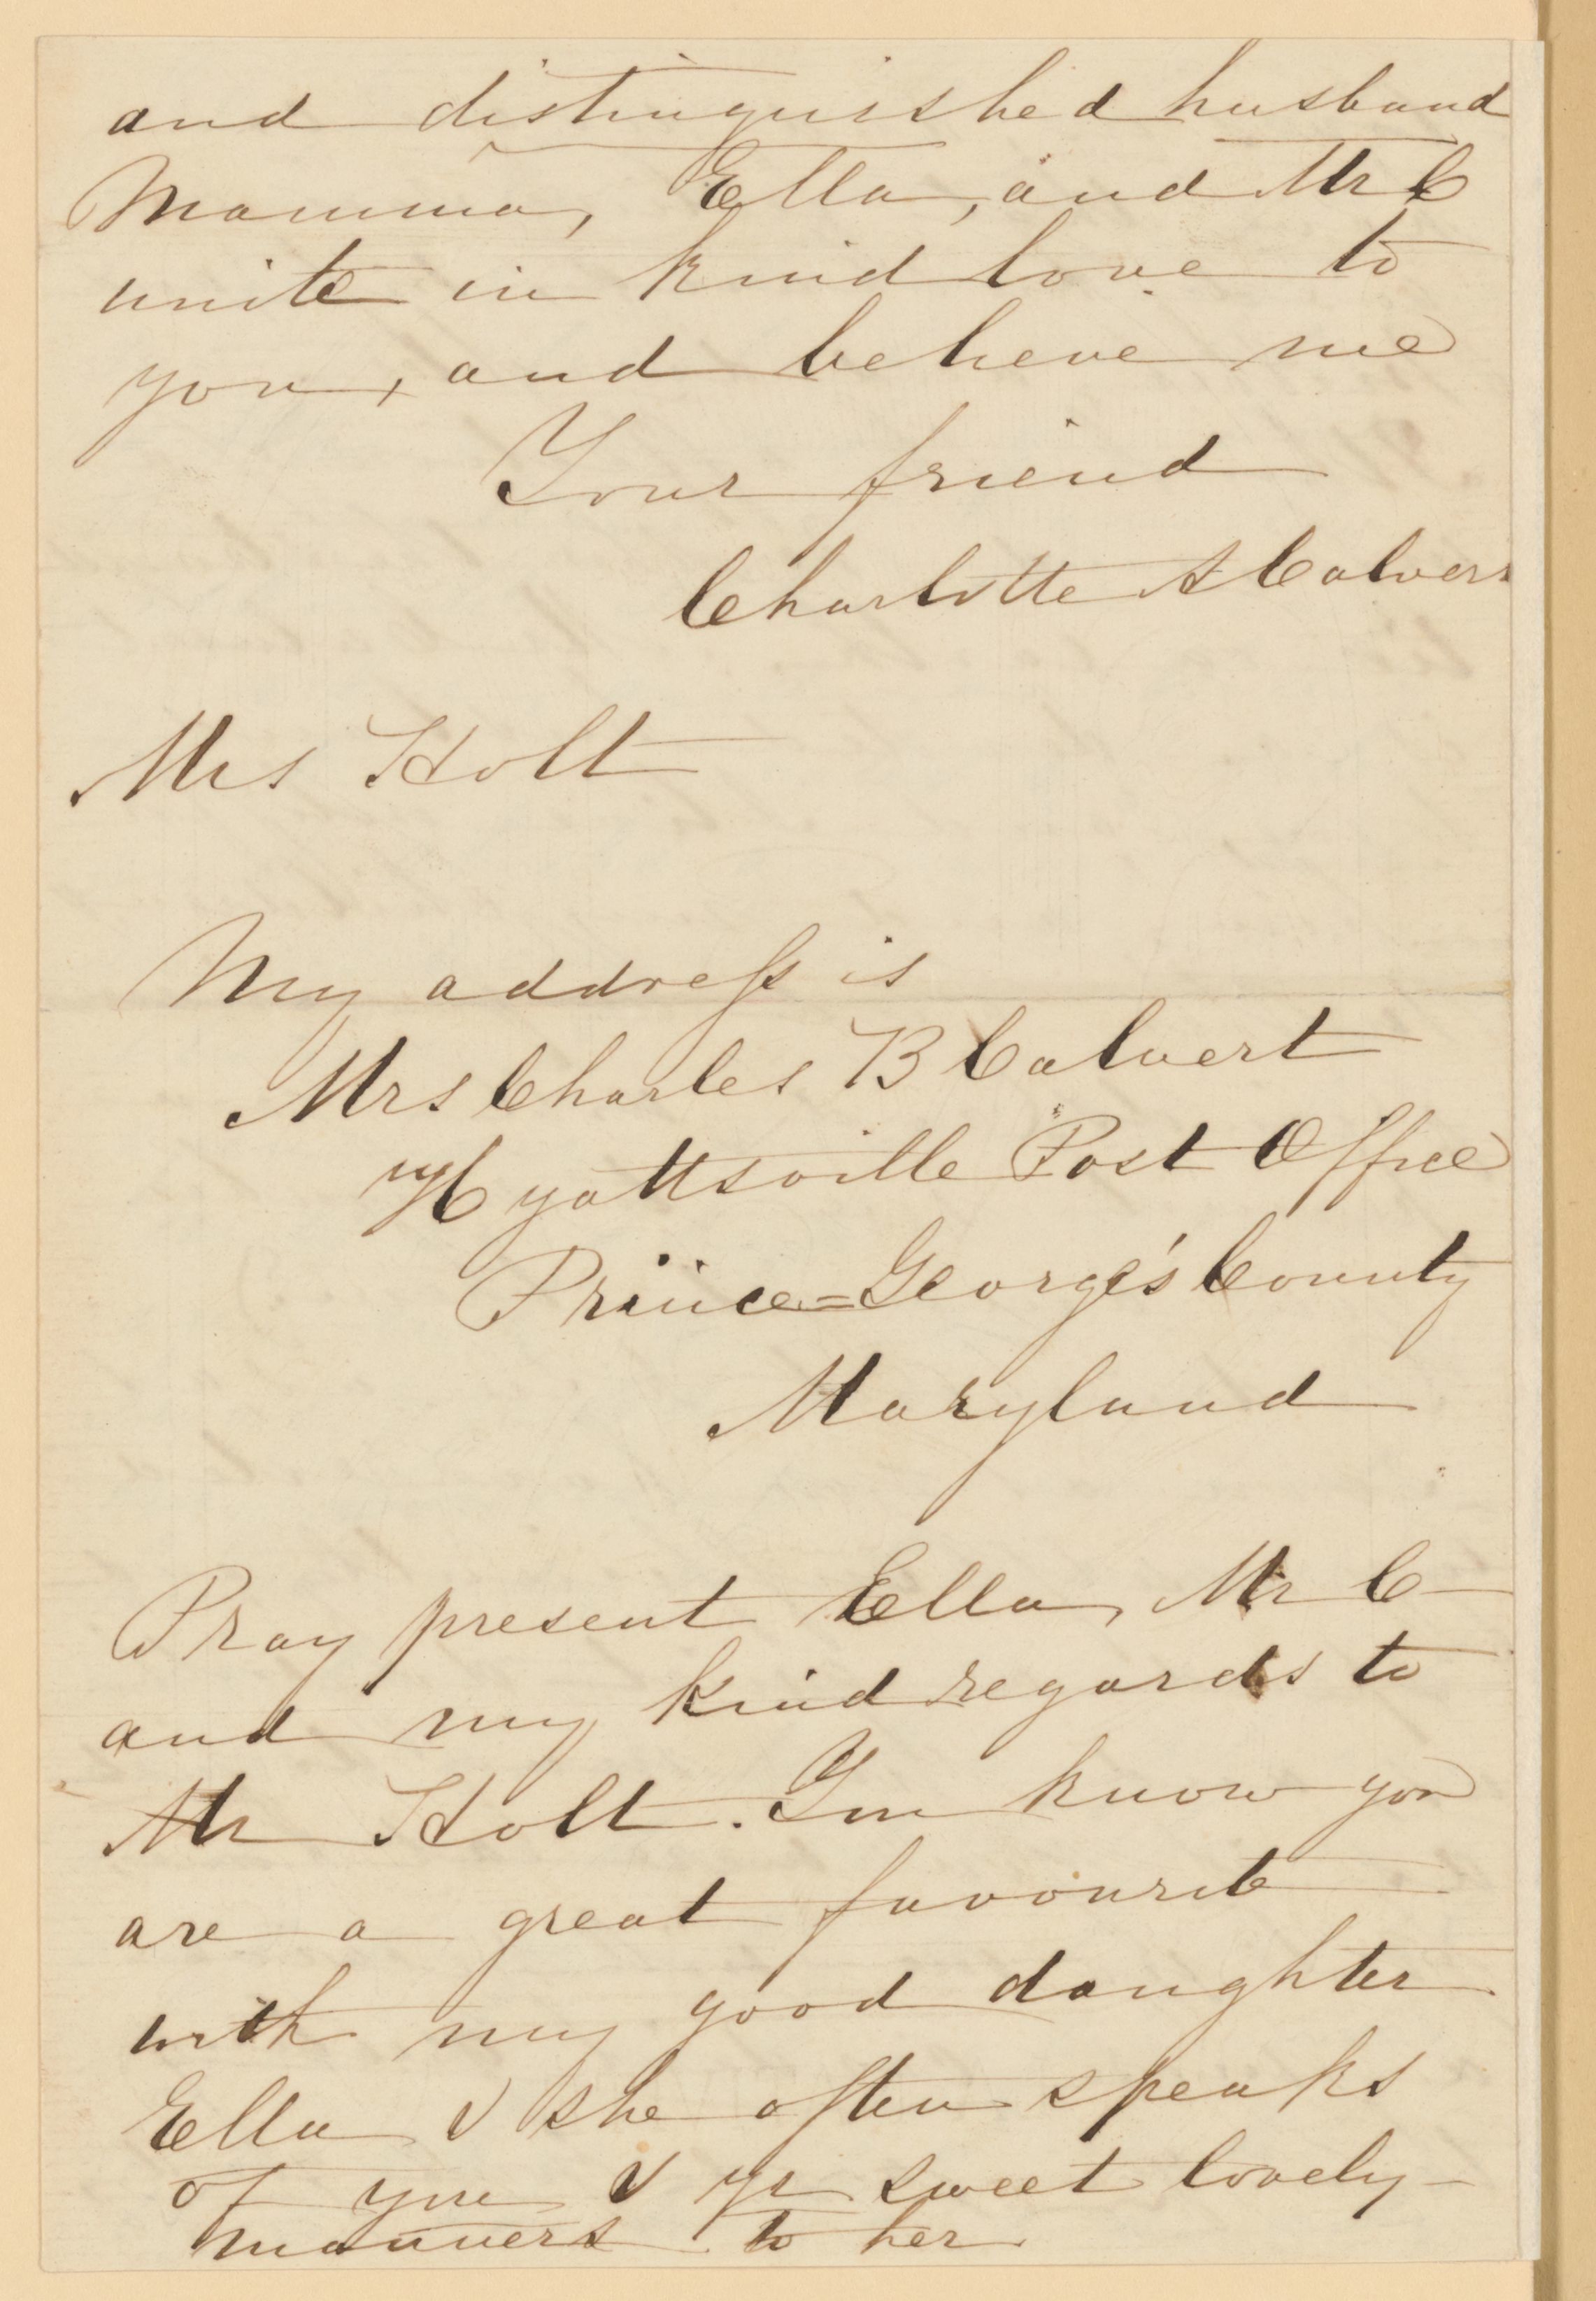 and distinguished husband
Mamma, Ella, and Mr C
unite in kind love to
you, and believe me
Your friend
Charlotte A Calvert
Mrs Holt
My address is
Mrs Charles B Calvert
Hyattsville Post Office
Prince=George's County
Maryland
Pray present Ella, Mr C—
and my kind regards to
Mr Holt. You know you
are a great favourite
with my good daughter
Ella & she often speaks
of you & yr sweet lovely
manners to her.